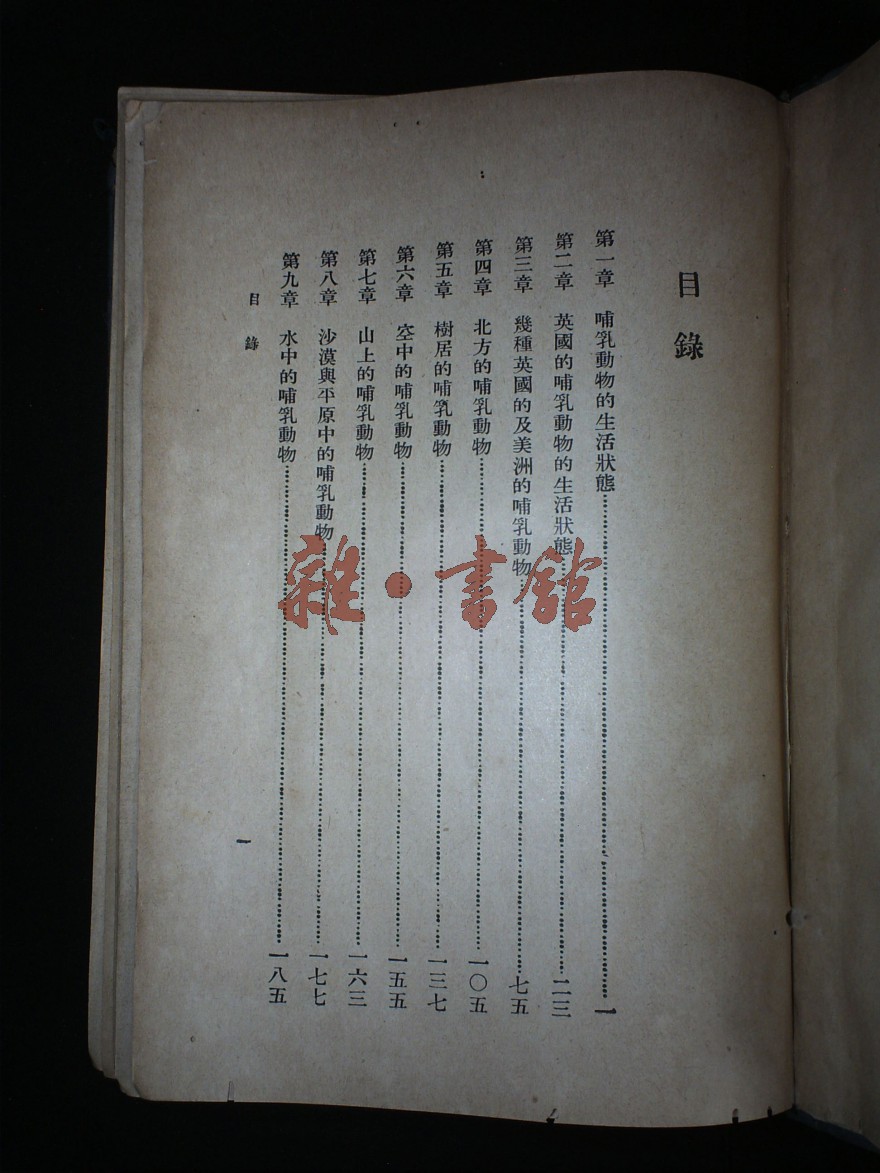 目錄
第一章 哺乳動物的生活狀態 一
第二章 英國的哺乳動物的生活狀態 二三
第三章 幾種英國的及美洲的哺乳動物 七五
第四章 北方的哺乳動物 一〇五
第五章 樹居的哺乳動物 一三七
第六章 空中的哺乳動物 一五五
第七章 山上的哺乳動物 一六三
第八章 沙漠與平原中的哺乳動物 一七七
第九章 水中的哺乳動物 一八五
目錄 一
雜·書館